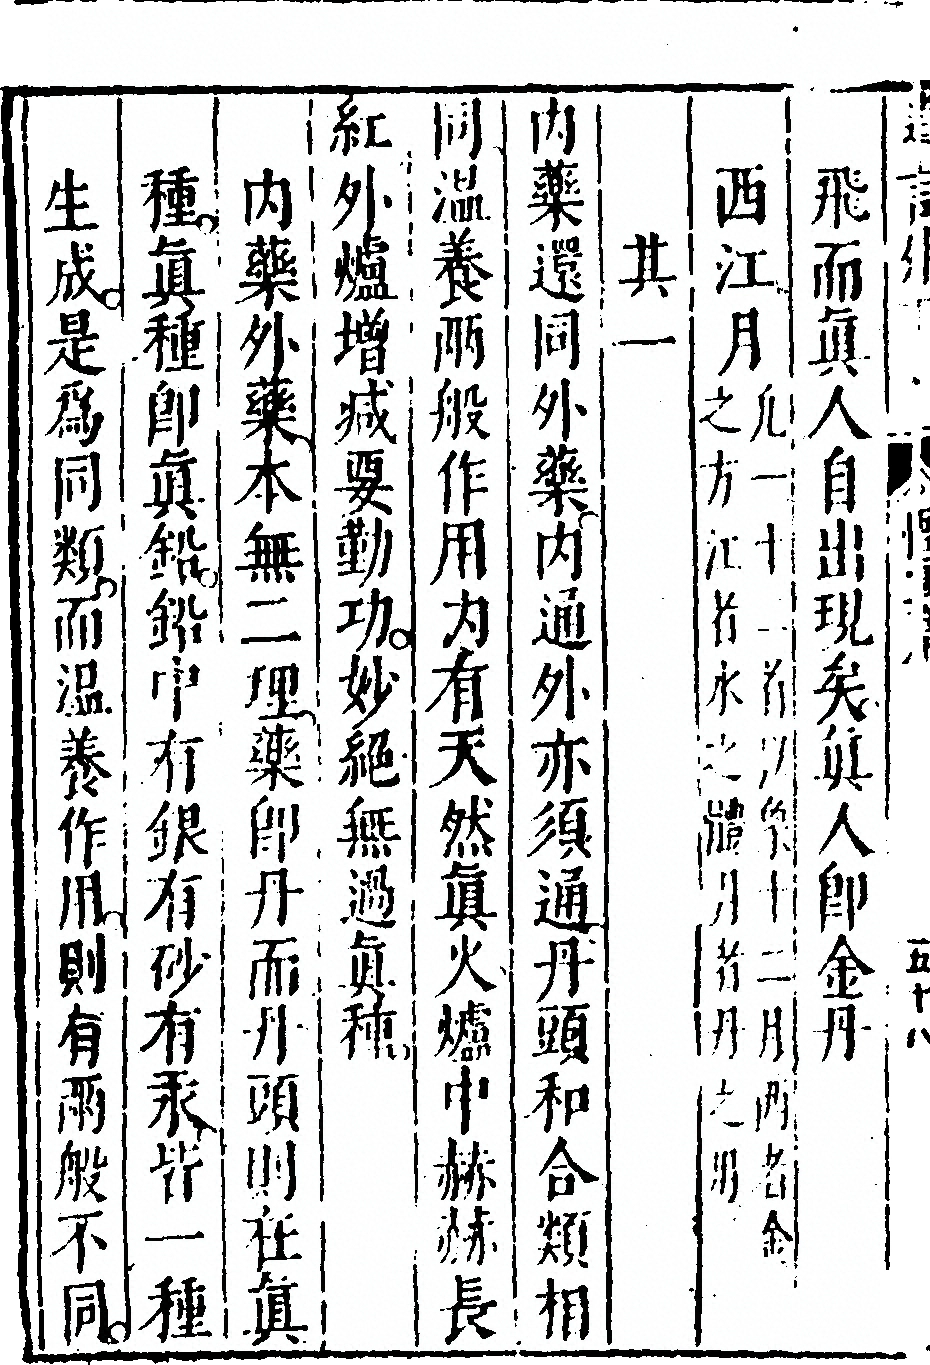 飛而眞人自出現矣眞人卽金丹
西江月凡一十二者以象十二月西者金之方江者水之體月者丹之用
其一
内藥還同外藥内通外亦須通丹頭和合類相
同温養兩般作用内有天然眞火爐中赫赫長
紅外爐增減要勤功妙絕無過眞種
内藥外藥本無二理藥卽丹而丹頭則在眞
種眞種卽眞鉛鉛中有銀有砂有汞皆一種
生成是爲同類而温養作用則有兩般不同
五十八